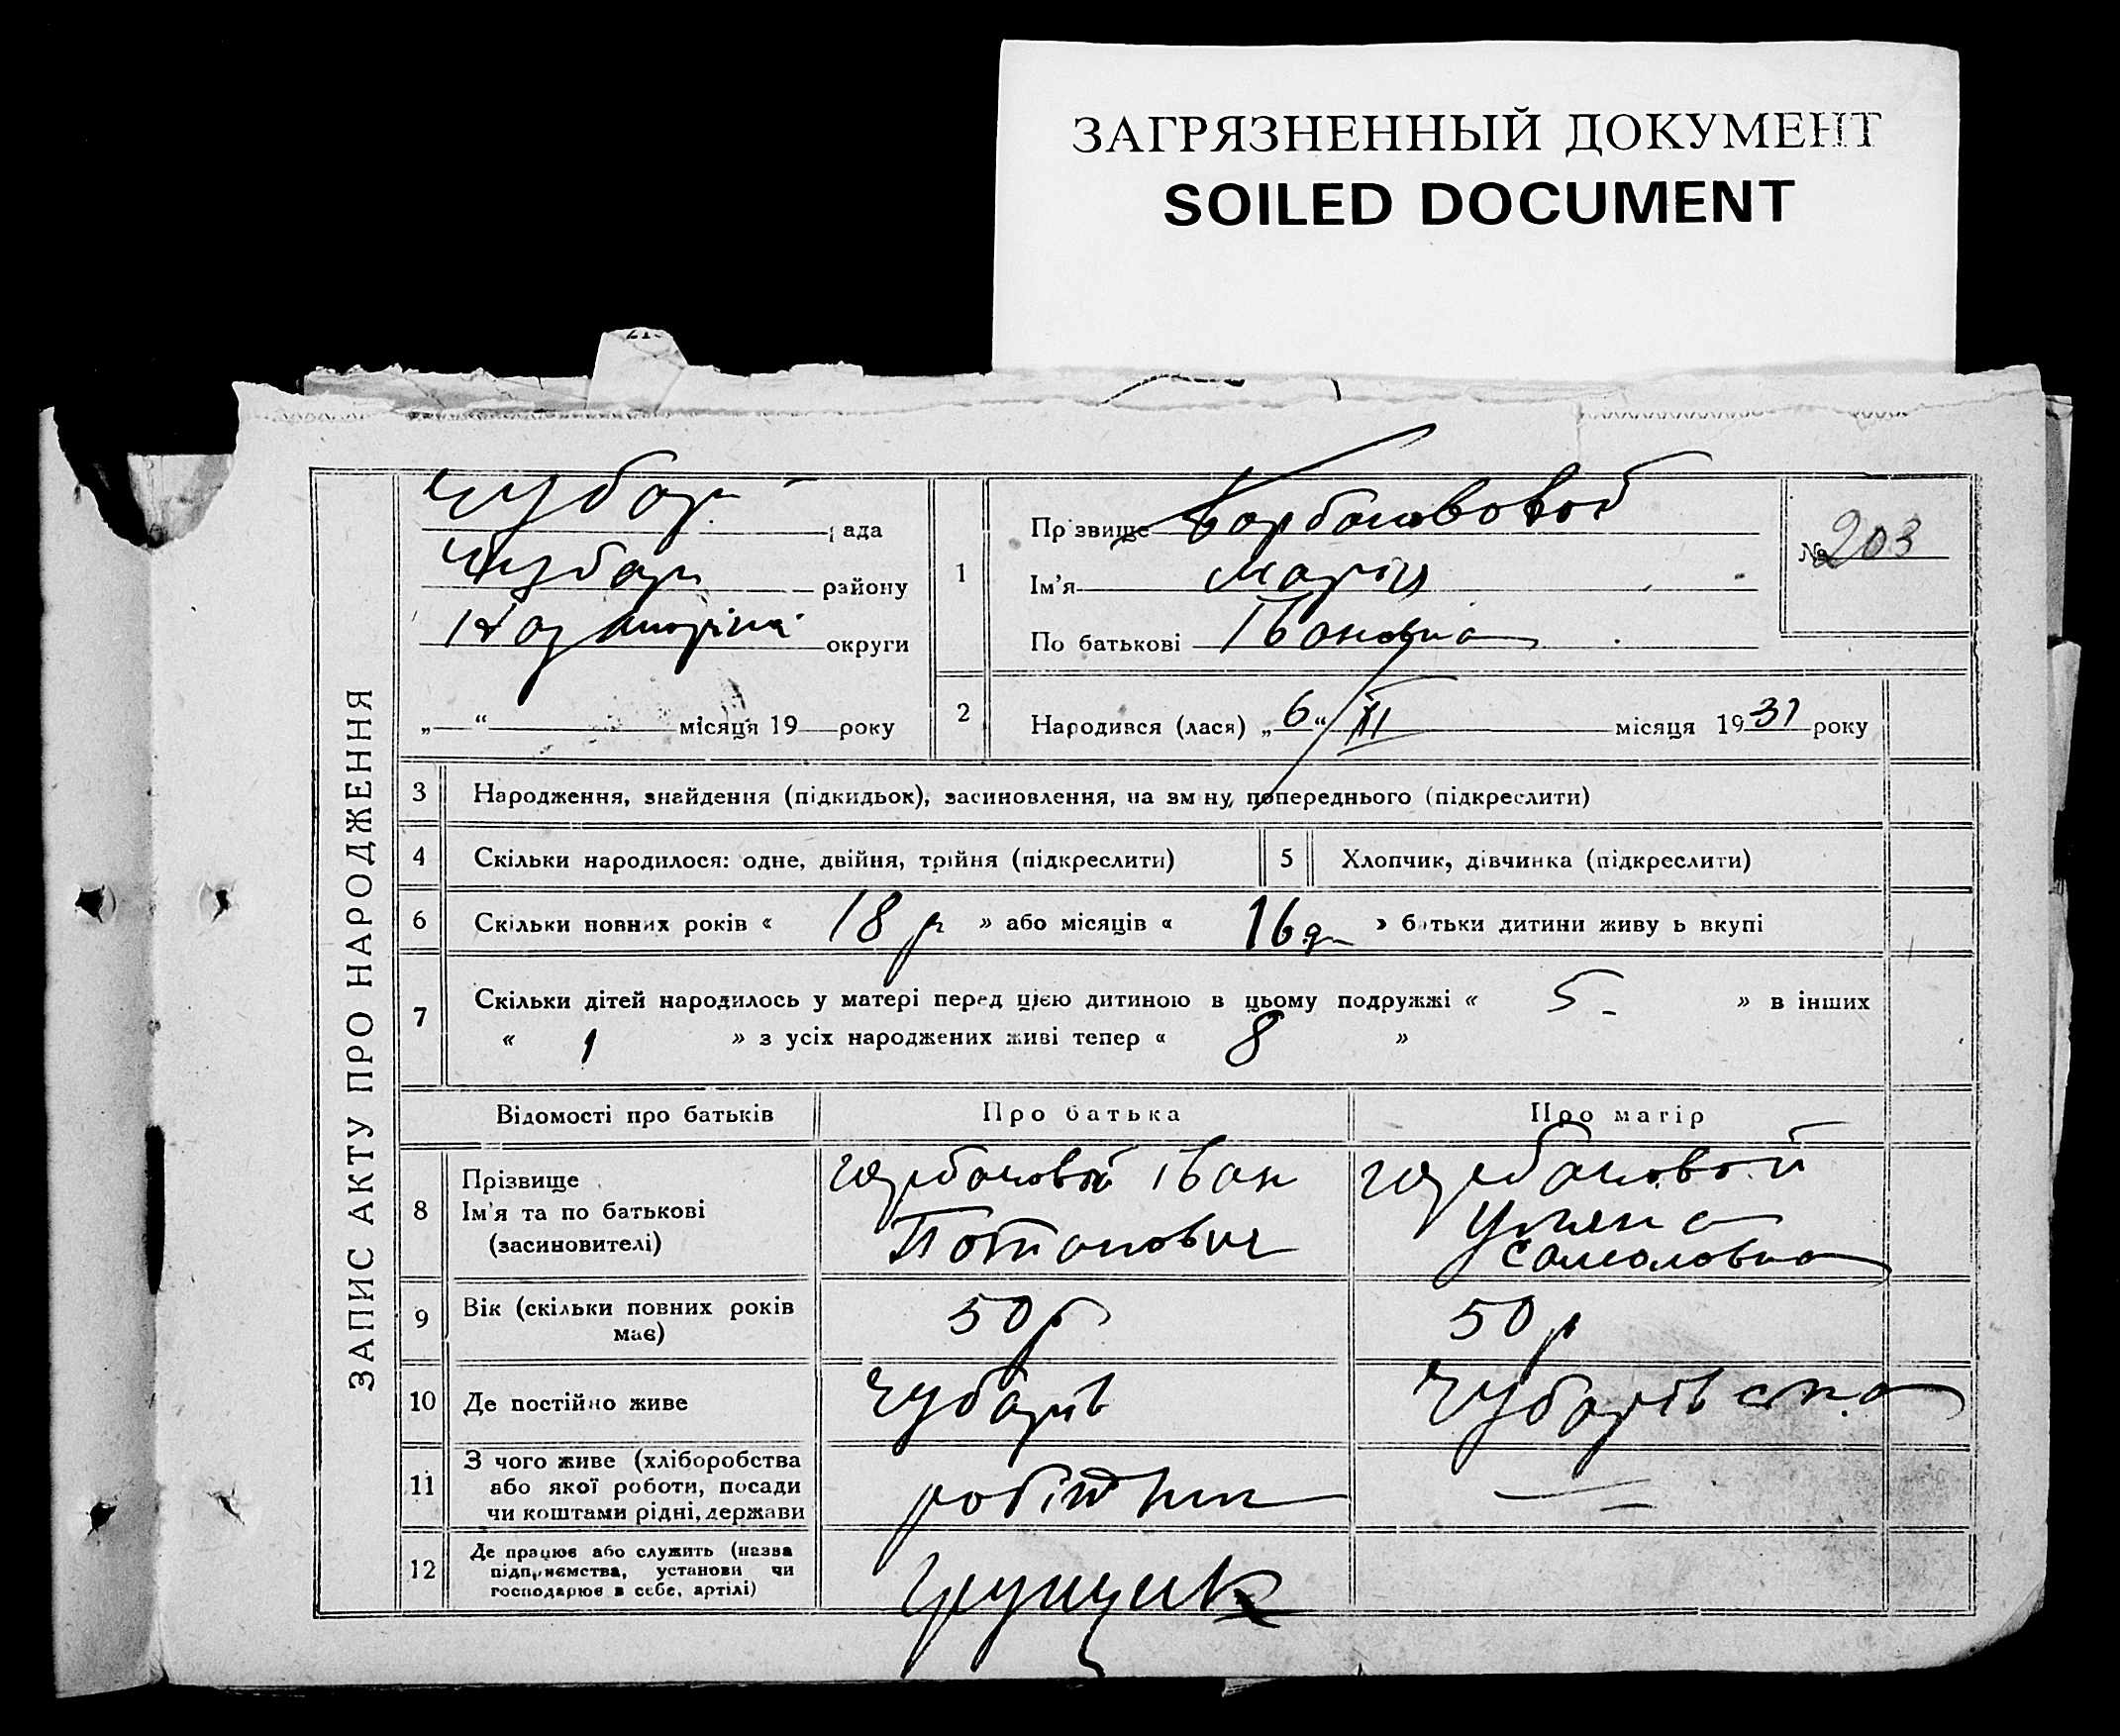 ЗАГРЯЗНЕННЫЙ ДОКУМЕНТ
SOILED DOCUMENT
ЗАПИС АКТУ ПРО НАРОДЖЕННЯ
Чубар ада
Чубар району
округи
„ “ місяця 19 року
1 Прізвище
Ім'я Марія
По батькові Івановна
№ 203
2 Народився (лася) „ 6 “ XI місяця 1931 року
3 Народження, знайдення (підкидьок), засиновлення, на зм ну, попереднього (підкреслити)
4 Скільки народилося: одне, двійня, трійня (підкреслити)
5 Хлопчик, дівчинка (підкреслити)
6 Скільки повних років « 18 р » або місяців « 16 д » батьки дитини живу ь вкупі
7 Скільки дітей народилось у матері перед цією дитиною в цьому подружжі « 5 - » в інших
« 1 » з усіх народжених живі тепер « 8 »
Відомості про батьків Про батька Про матір
8 Прізвище
Ім'я та по батькові
(засиновителі)
Іван
Потапович
Уляна
Самоловна
9 Вік (скільки повних років
має)
50 р
50 р
10 Де постійно живе
Чубарів
Чубарівска
11 З чого живе (хліборобства
або якої роботи, посади
чи коштами рідні, держави
робітник
—
12 Де працює або служить (назва
підприємства, установи чи
господарює в себе, артілі)